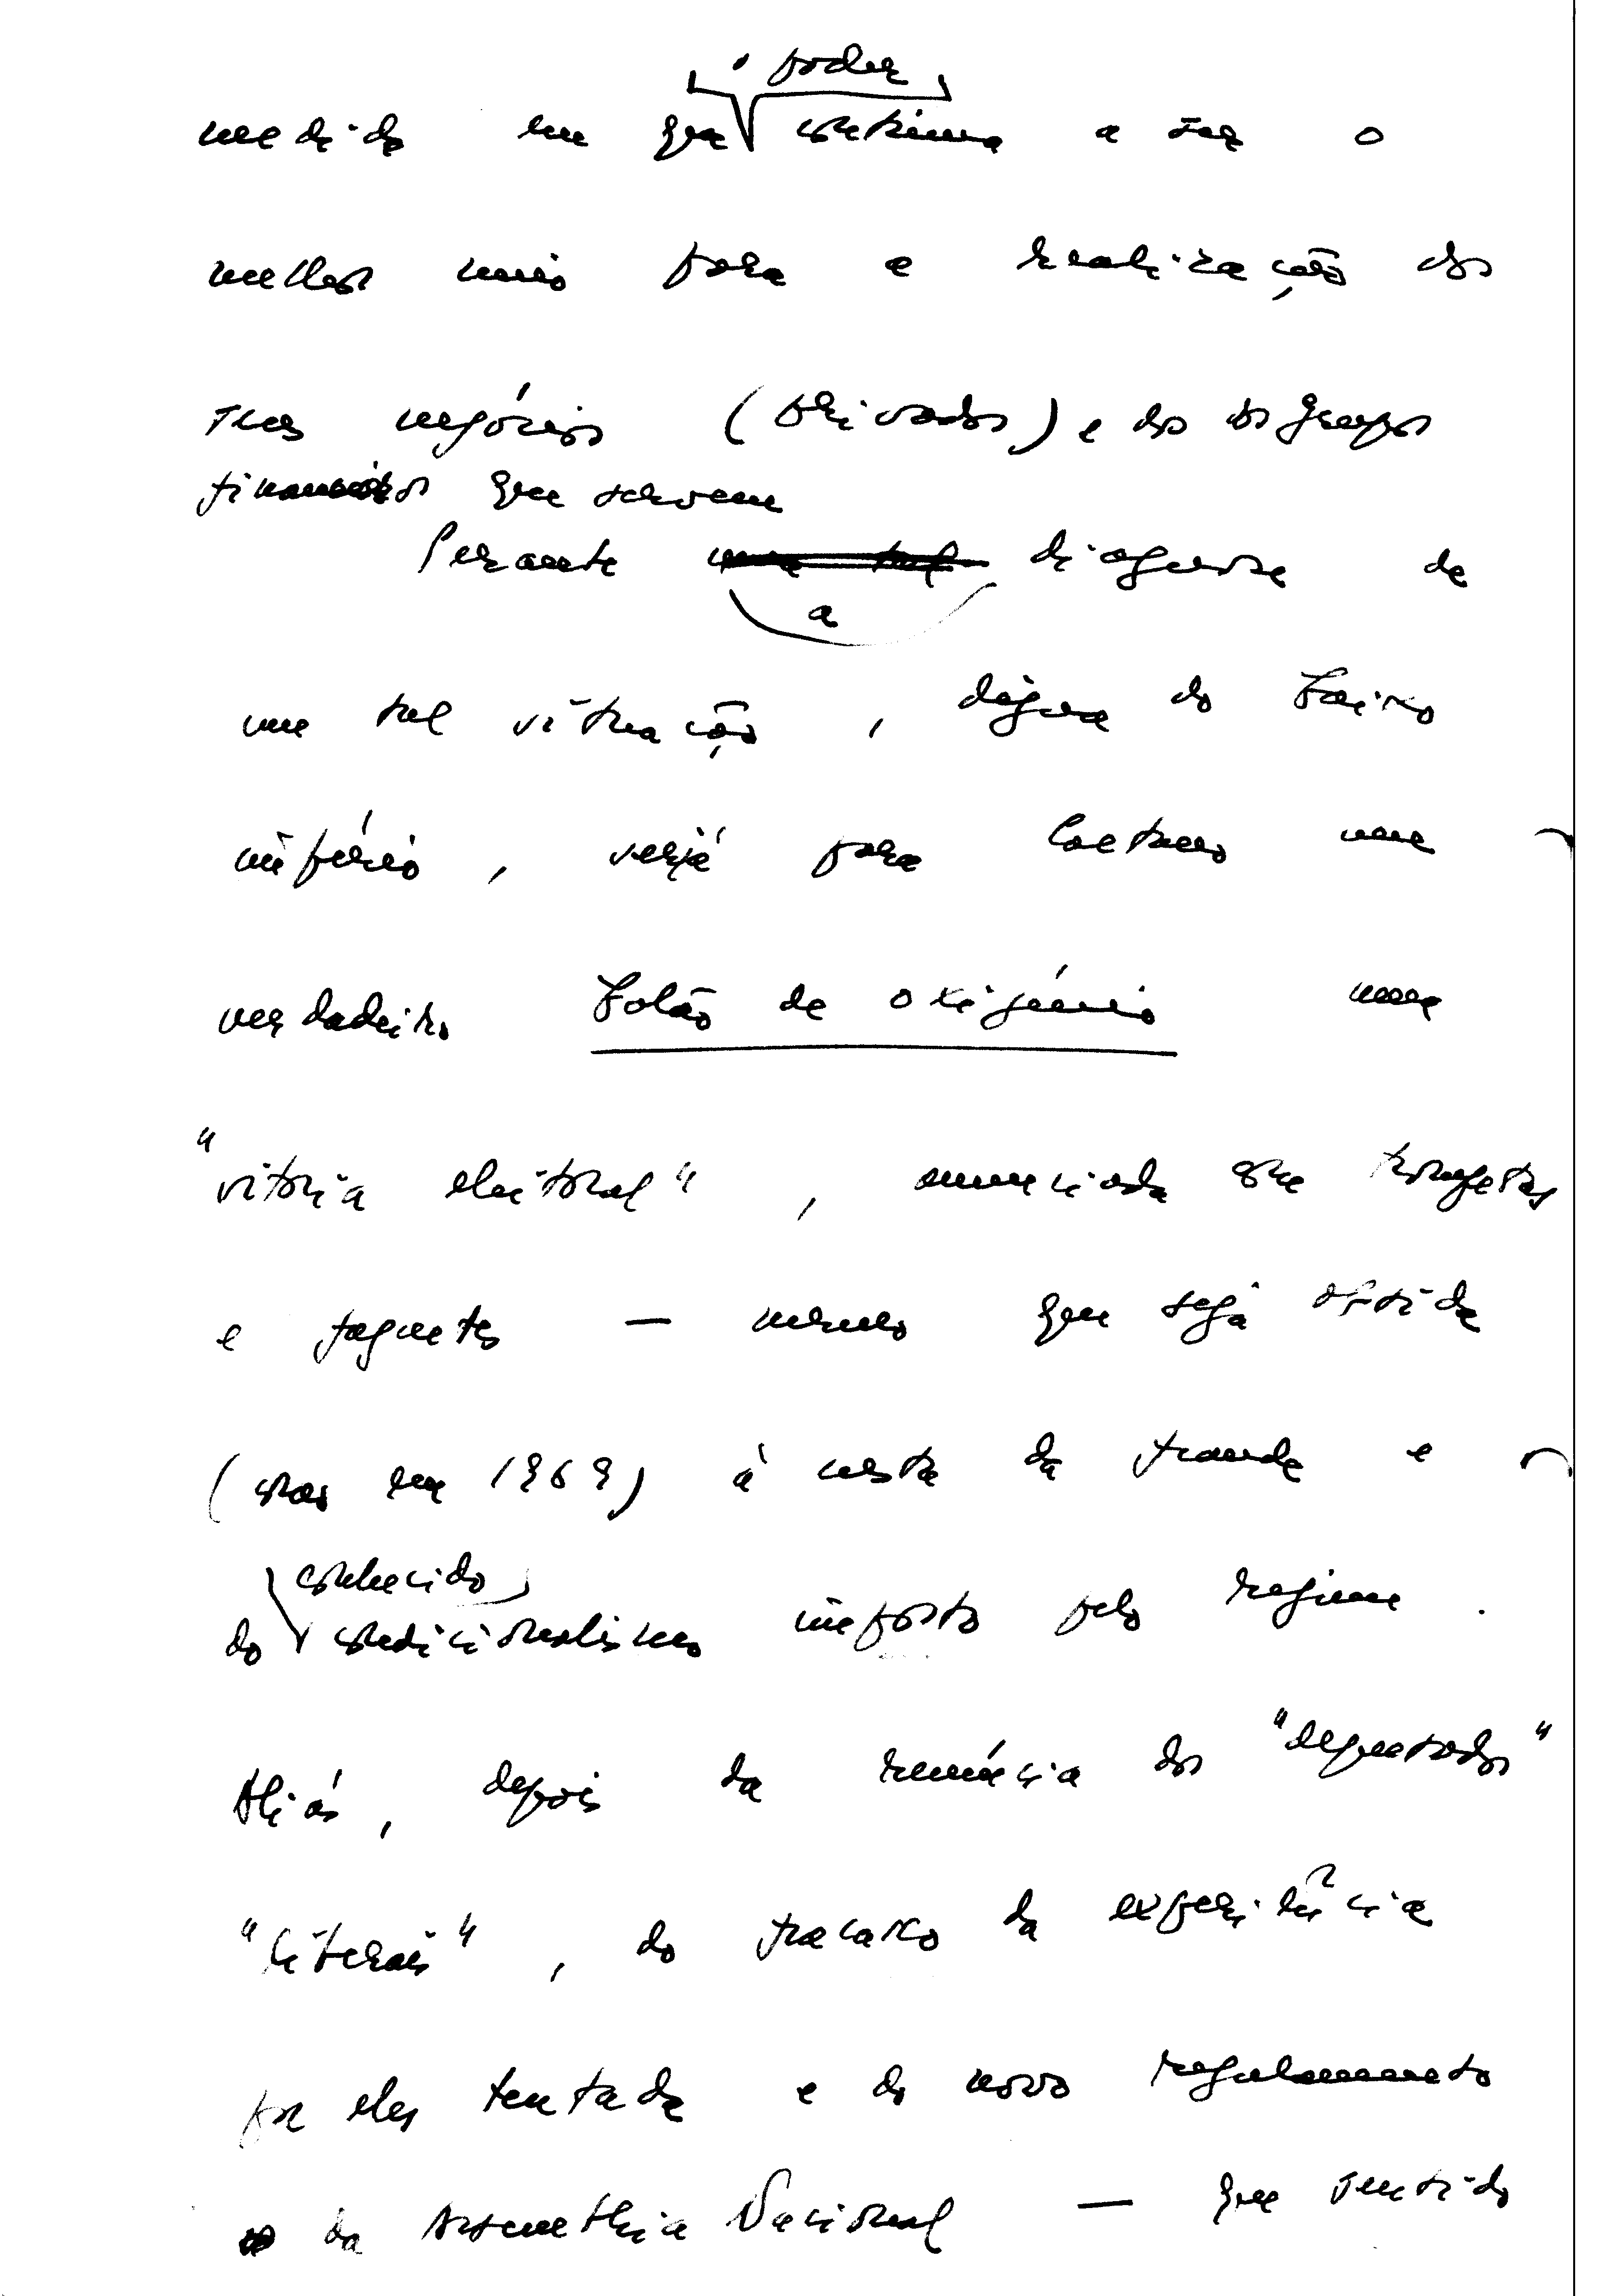 o poder
medida em que continua a ser o
melhor meio para a realização dos
seus negócios (privados) e dos dos grupos
financeiros que servem
Perante diagnose de
a
uma tal situação, digna do Baixo
império, seria para Caetano um
verdadeiro balão de oxigénio uma
"vitória eleitoral", anunciada com trompetas
e foguetes — mesmo que seja obtida
(como em 1969) à custa da fraude e
conhecido
do condicionalismo imposto pelo regime.
Aliás, depois da renúncia dos "deputados"
"liberais", do fracasso da experiência
por eles tentada e do novo regulamento
da Assembleia Nacional — que sentido